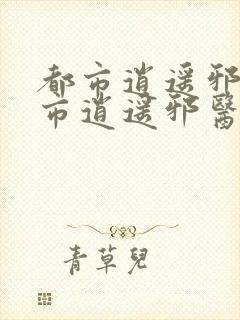 都市逍遥邪
市逍遥邪醫
青草兒